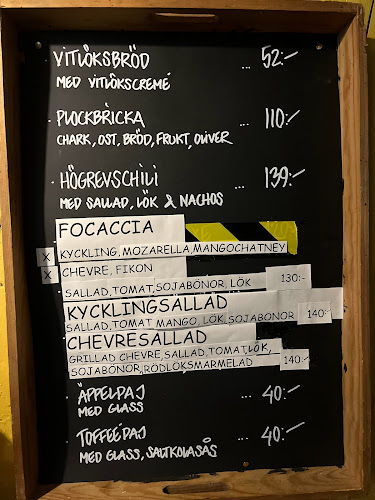 VITLÖKSBRÖD ... 52:-
MED VITLÖKSCREMÉ
PLOCKBRICKA ... 110:-
CHARK, OST, BRÖD, FRUKT, OLIVER
HÖGREVSCHILI ... 139:-
MED SALLAD, LÖK & NACHOS
FOCACCIA
X KYCKLING, MOZARELLA,MANGOCHATNEY
X CHEVRE, FIKON
SALLAD,TOMAT,SOJABÖNOR, LÖK 130:-
KYCKLINGSALLAD
SALLAD,TOMAT MANGO, LÖK,SOJABONOR 140:-
CHEVRESALLAD
GRILLAD CHEVRE,SALLAD,TOMAT,LÖK,
SOJABÖNOR,RÖDLÖKSMARMELAD 140:-
ÄPPELPAJ ... 40:-
MED GLASS
TOFFEEPAJ ... 40:-
MED GLASS, SALTKOLASÅS